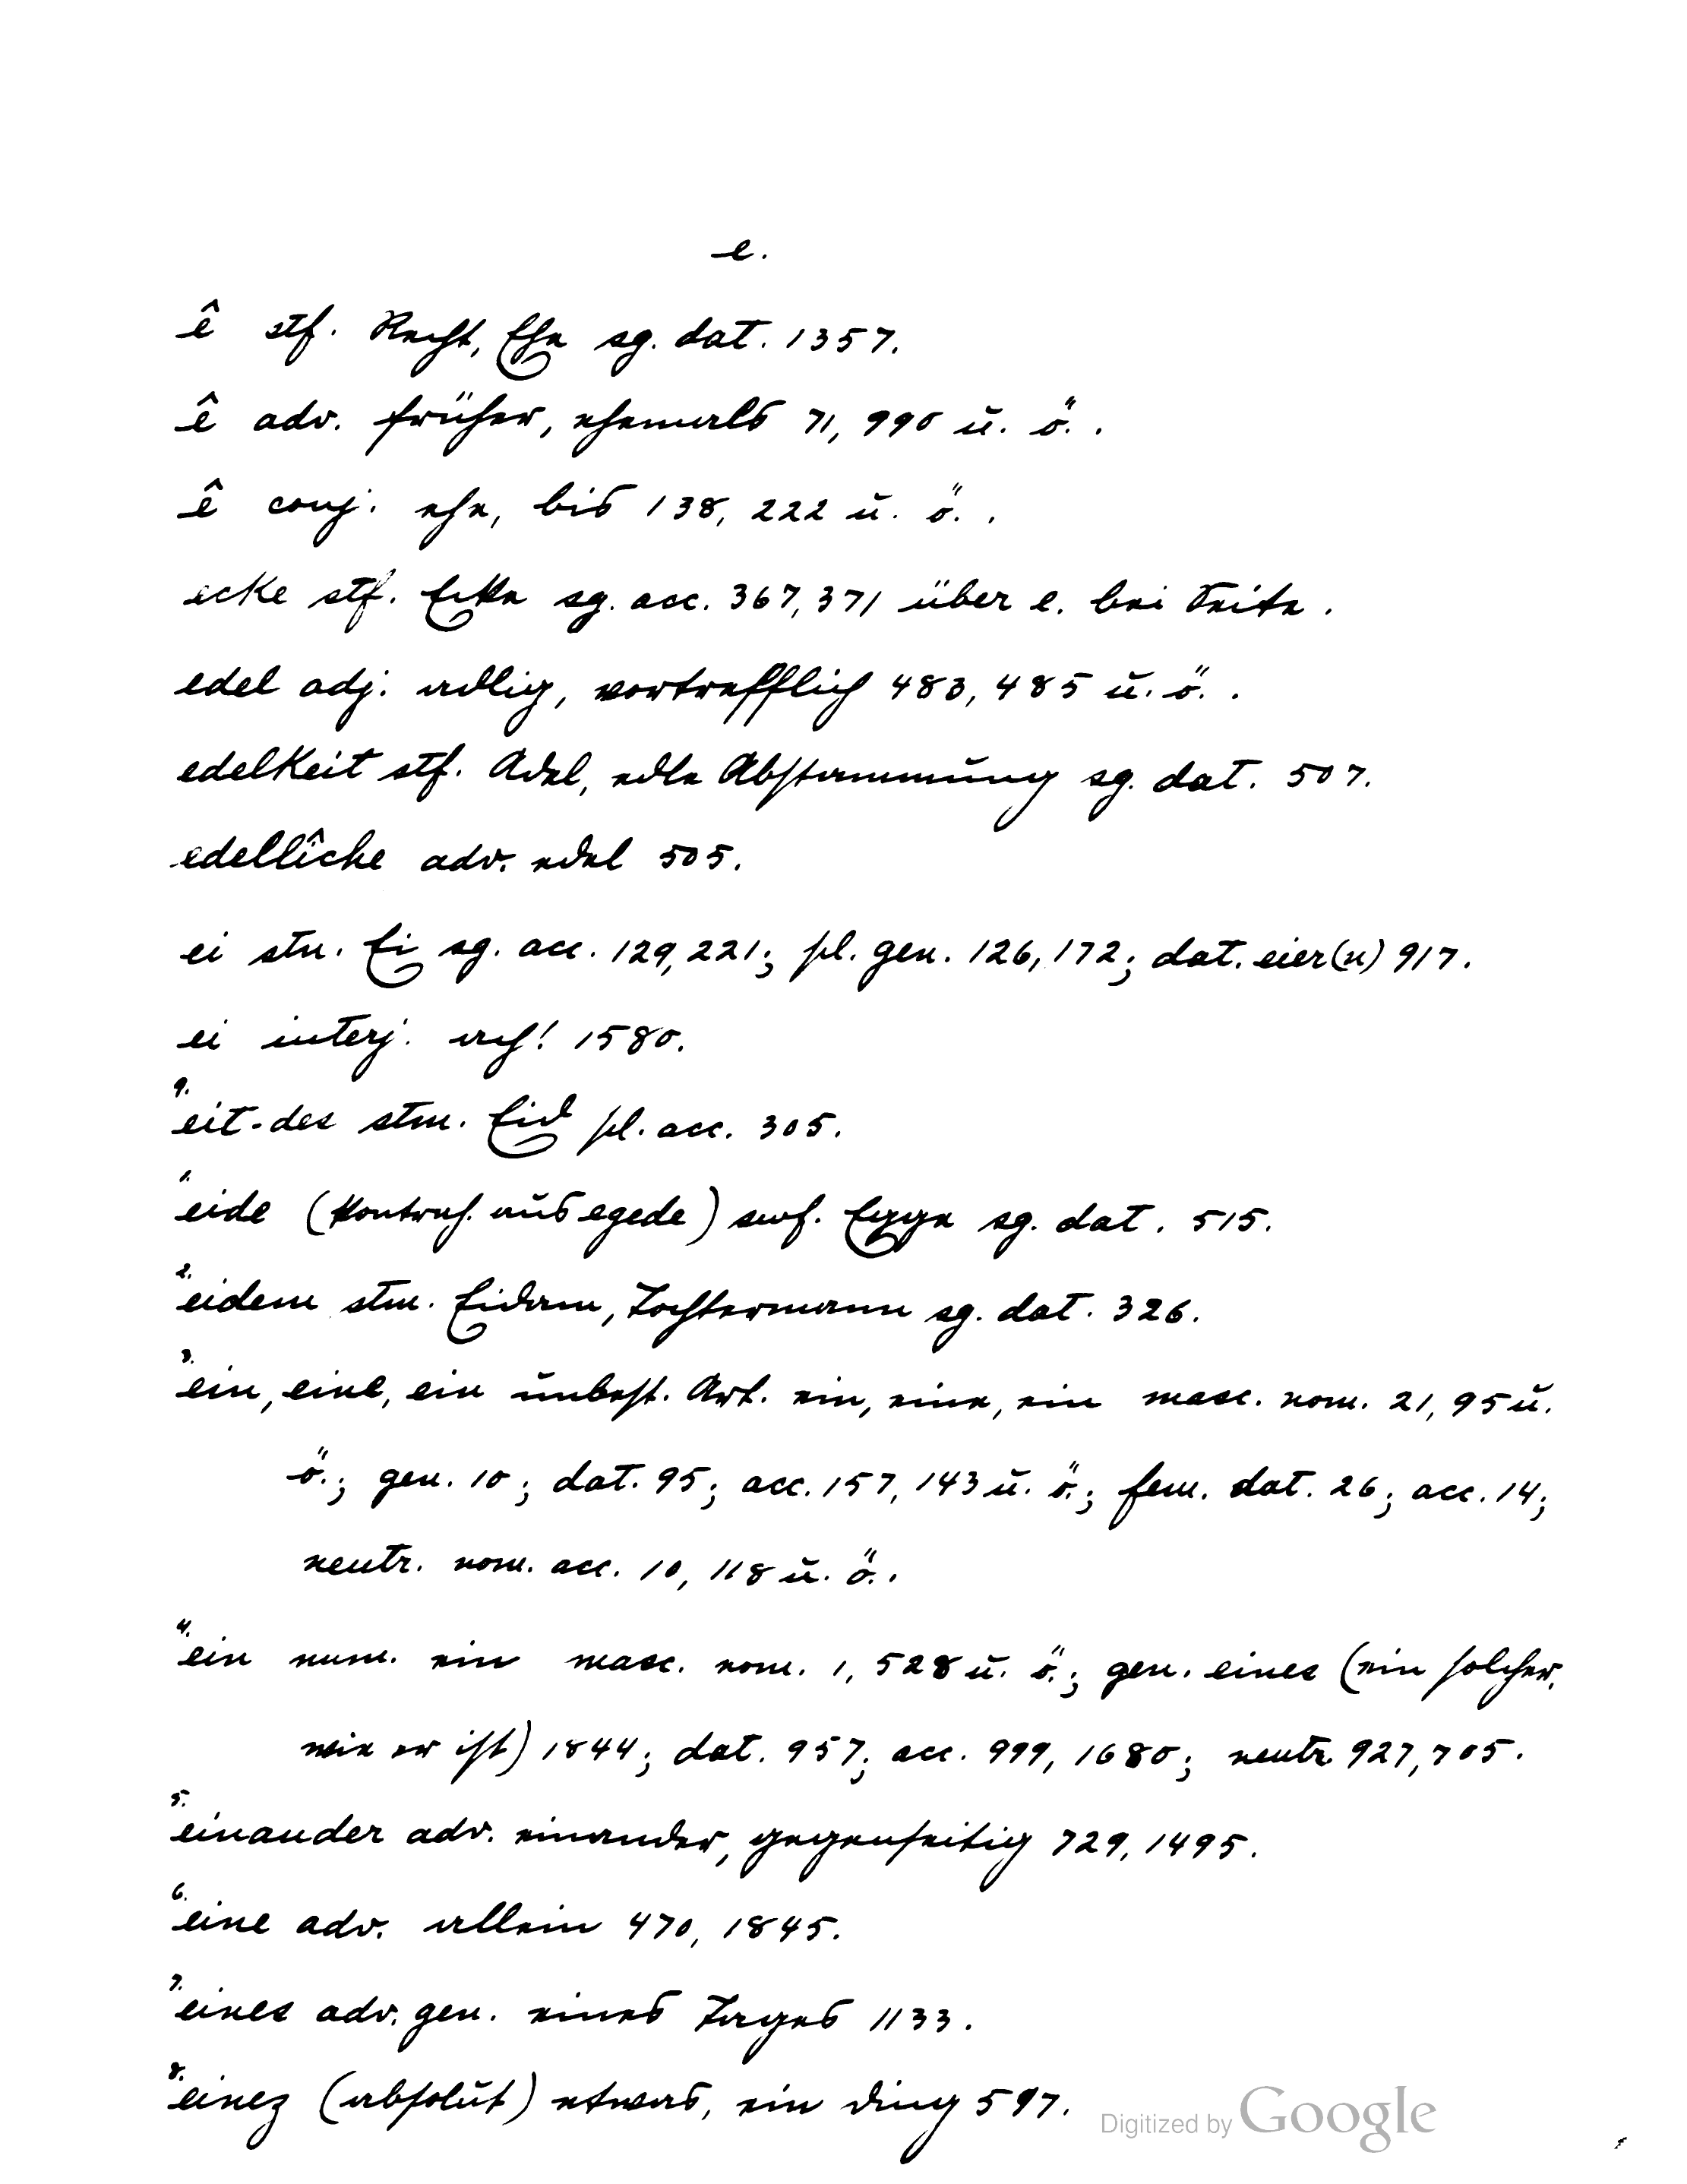 e.
ê stf. Recht, Ehe sg. dat. 1357.
ê adv. früher, ehemals 71, 990 u. ö. .
ê conj. ehe, bis 138, 222 u. ö. .
ecke stf. Ecke sg. acc. 367, 371 über e. bei Seite .
edel adj. adlig, vortrefflich 483, 485 u. ö. .
edelkeit stf. Adel, edle Abstammung sg. dat. 507.
edellîche adv. edel 505.
ei stn. Ei sg. acc. 129, 221; pl. gen. 126, 172; dat. eier(n) 917.
ei interj. ach! 1580.
9. eit-des stm. Eid pl. acc. 305.
1. eide (kontrah. aus egede) swf. Egge sg. dat. 515.
2. eidem stm. Eidam, Tochtermann sg. dat. 326.
3. ein, eine, ein unbest. Art. ein, eine, ein masc. nom. 21, 95 u.
ö.; gen. 10; dat. 95; acc. 157, 143 u. ö.; fem. dat. 26; acc. 14;
neutr. nom. acc. 10, 118 u. ö. .
4. ein num. ein masc. nom. 1, 528 u. ö.; gen. eines (ein solcher,
wie er ist) 1844; dat. 957; acc. 999, 1680; neutr. 927, 705.
5. einander adv. einander, gegenseitig 729, 1495.
6. eine adv. allein 470, 1845.
7. eines adv. gen. eines Tages 1133.
8. einez (absolut) etwas, ein ding 597.
Digitized by Google